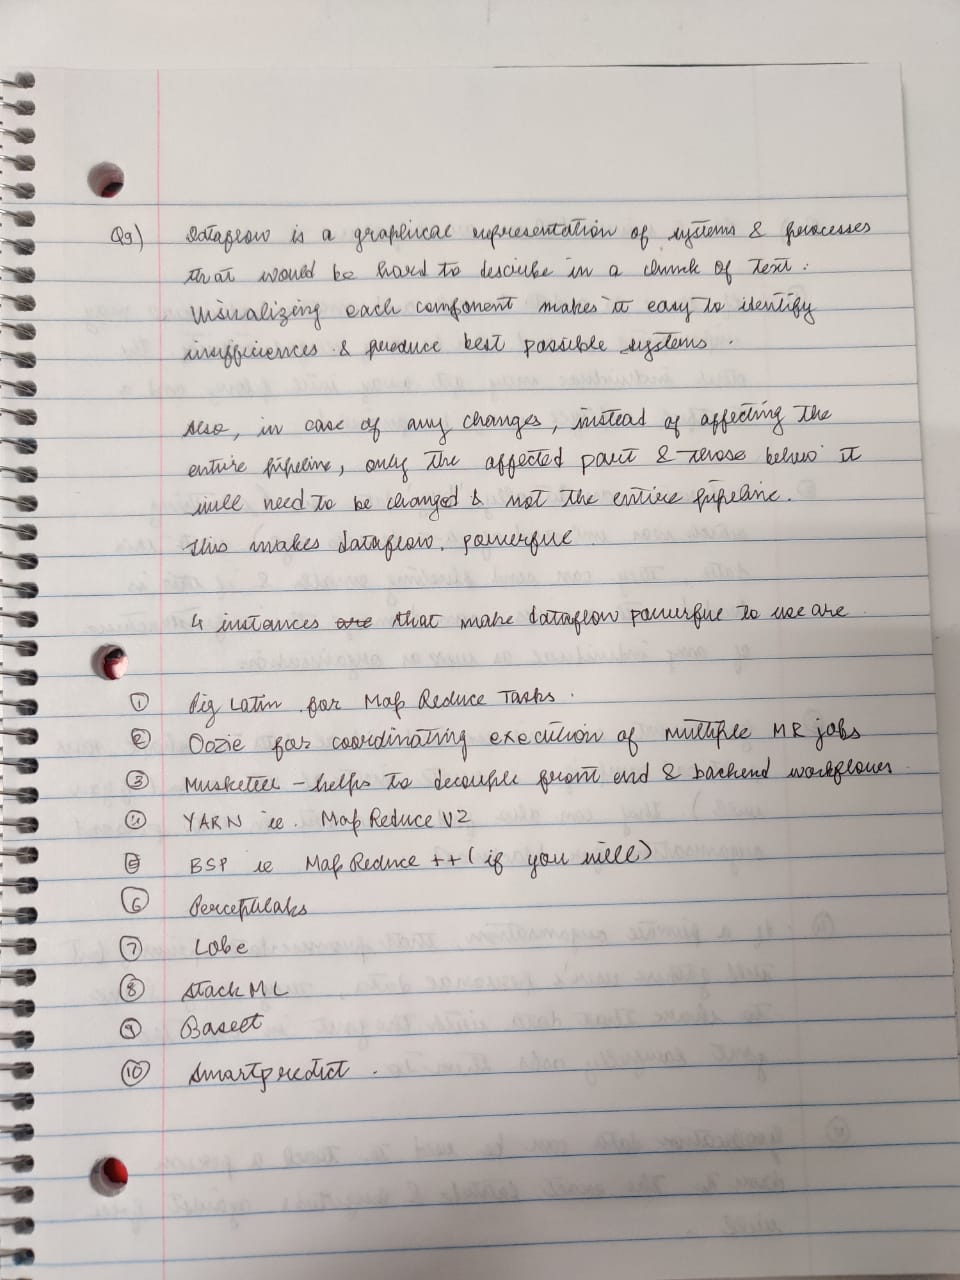 Q9) Dataflow is a graphical representation of systems & processes
that would be hard to describe in a chunk of text.
Visualizing each component makes it easy to identify
insufficiences & produce best possible systems.
Also, in case of any changes, instead of affecting the
entire pipeline, only the affected part & those below it
will need to be changed & not the entire pipeline.
This makes dataflow powerful.
4 instances are that make dataflow powerful to use are
① Pig Latin for Map Reduce Tasks.
② Oozie for coordinating execution of multiple MR jobs
③ Musketeer - helps to decouple front end & backend workflows
④ YARN ie. Map Reduce V2
⑤ BSP ie Map Reduce ++ (if you will)
⑥ Perceptilabs
⑦ Lobe
⑧ Stack ML
⑨ Baseet
⑩ Smartpredict.